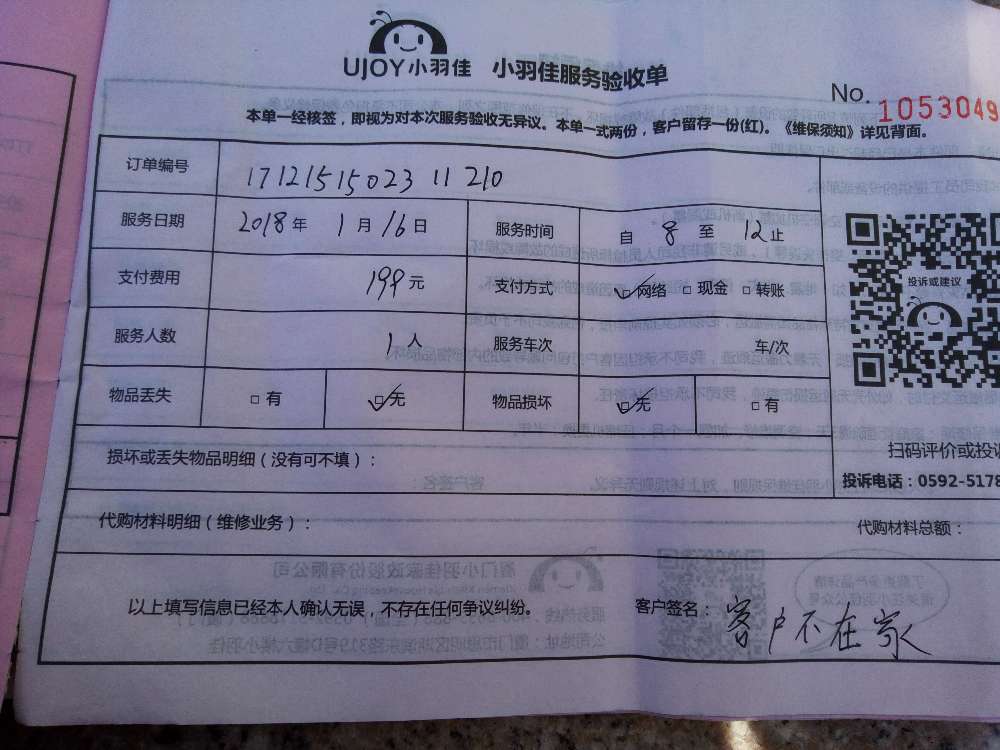 UJOY小羽佳 小羽佳服务验收单
No. 1053049
本单一经核签，即视为对本次服务验收无异议。本单一式两份，客户留存一份(红)。《维保须知》详见背面。
订单编号 1712151502311210
服务日期 2018年1月16日 服务时间 自8至12止
支付费用 199元 支付方式 ☑网络 □现金 □转账
投诉或建议
服务人数 1人 服务车次 车/次
物品丢失 □有 ☑无 物品损坏 ☑无 □有
损坏或丢失物品明细（没有可不填）：
扫码评价或投诉
投诉电话：0592-5178
代购材料明细（维修业务）： 代购材料总额：
以上填写信息已经本人确认无误，不存在任何争议纠纷。 客户签名：客户不在家